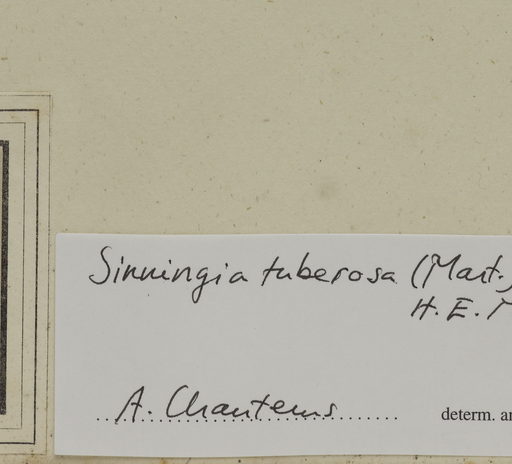 Sinningia tuberosa (Mart.)
H. E. M
A. Chautems
determ. an